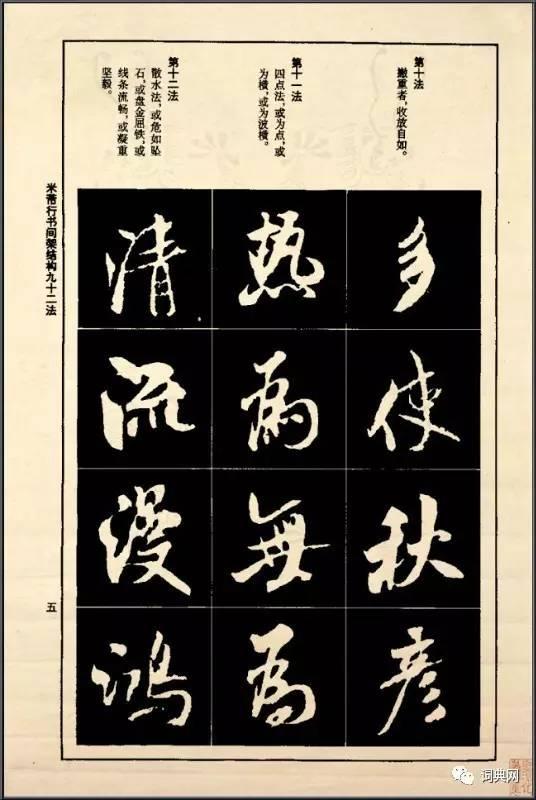 第十法
撇重者，收放自如。
多使秋彦
第十一法
四点法，或为点，或
为横，或为波横。
热為無為
第十二法
散水法，或危如坠
石，或盘金屈铁，或
线条流畅，或凝重
坚毅。
清流漫鴻
米芾行书间架结构九十二法
五
词典网